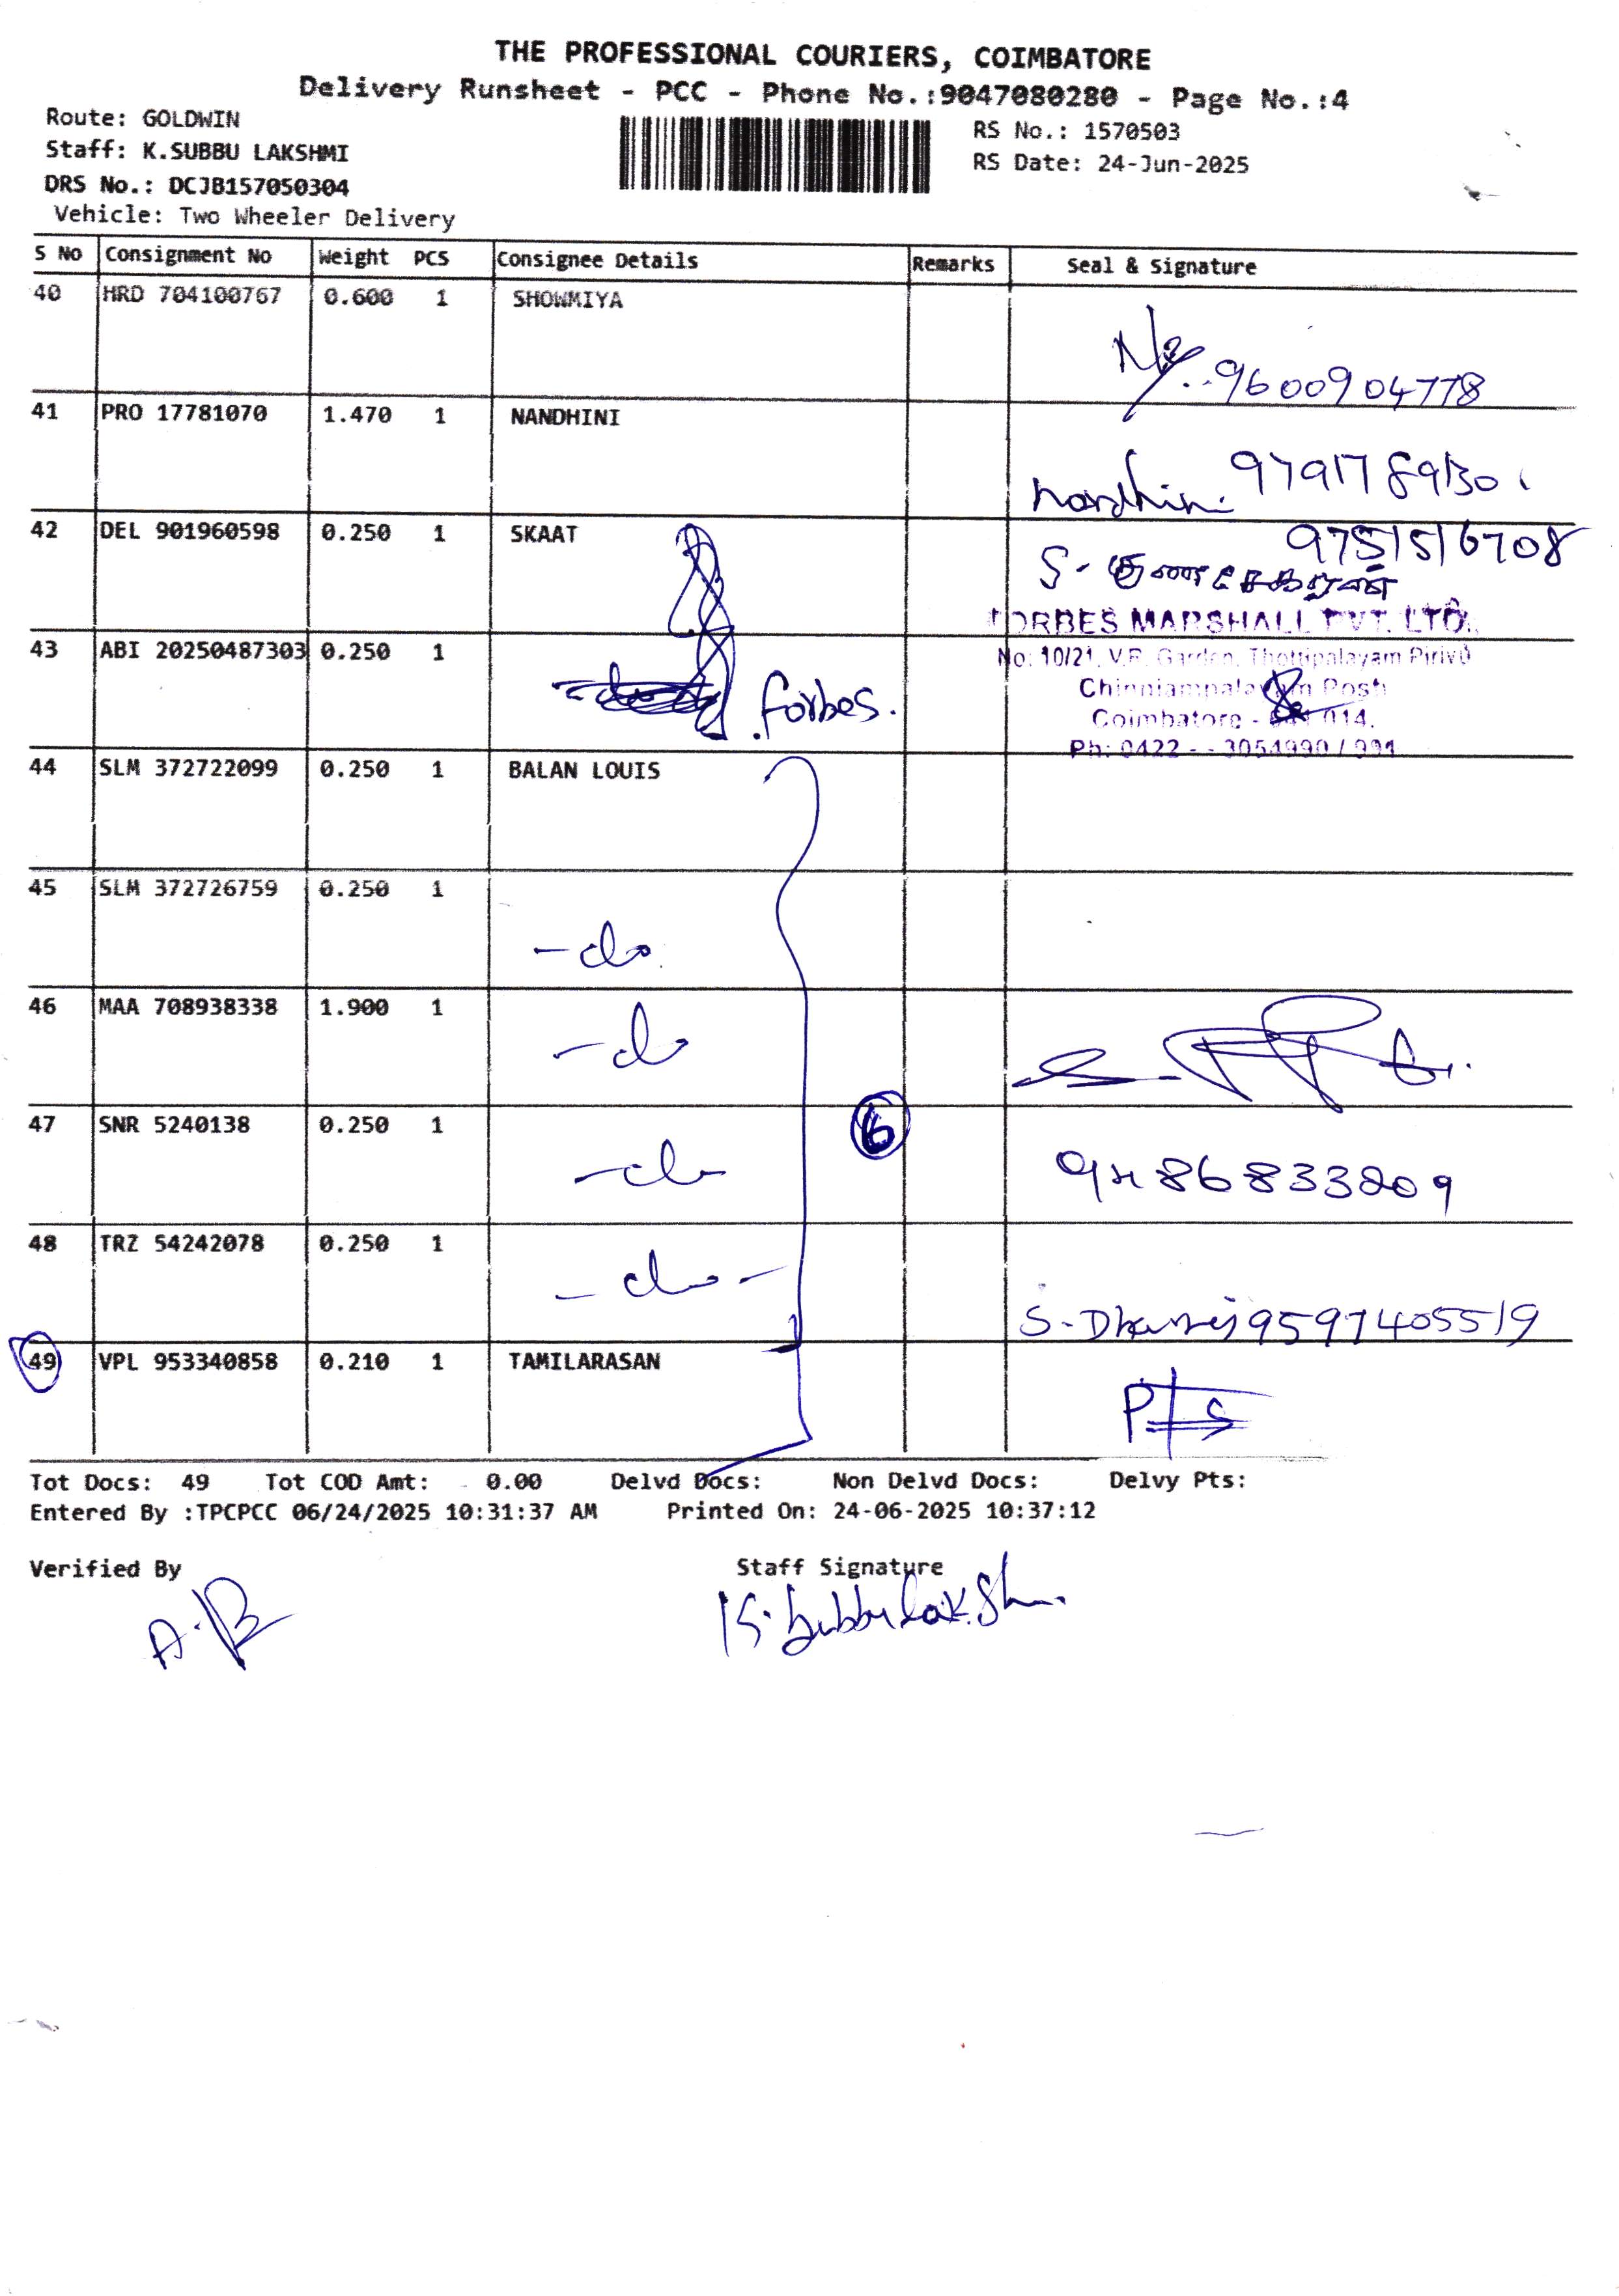 THE PROFESSIONAL COURIERS, COIMBATORE
Delivery Runsheet - PCC - Phone No.:9047080280 - Page No.:4
Route: GOLDWIN
Staff: K.SUBBU LAKSHMI
DRS No.: DCJB157050304
Vehicle: Two Wheeler Delivery
RS No.: 1570503
RS Date: 24-Jun-2025
S No Consignment No Weight PCS Consignee Details Remarks Seal & Signature
40 HRD 704100767 0.600 1 SHOWMIYA
9600904778
41 PRO 17781070 1.470 1 NANDHINI
Nandhini
42 DEL 901960598 0.250 1 SKAAT
9751516708
S- குணசேகரன்
FORBES MARSHALL PVT. LTD.
43 ABI 20250487303 0.250 1
No: 10/21, V.R. Garden, Thottipalayam Pirivu
Chinniampalayam Post
forbes.
Coimbatore - 641 014.
Ph: 0422 - - 3054990 / 991
44 SLM 372722099 0.250 1 BALAN LOUIS
45 SLM 372726759 0.250 1
-do
46 MAA 708938338 1.900 1
-do
47 SNR 5240138 0.250 1
6
-do
9486833209
48 TRZ 54242078 0.250 1
-do-
9597405519
49 VPL 953340858 0.210 1 TAMILARASAN
Tot Docs: 49 Tot COD Amt: 0.00 Delvd Docs: Non Delvd Docs: Delvy Pts:
Entered By :TPCPCC 06/24/2025 10:31:37 AM Printed On: 24-06-2025 10:37:12
Verified By Staff Signature
K.Subbulakshmi